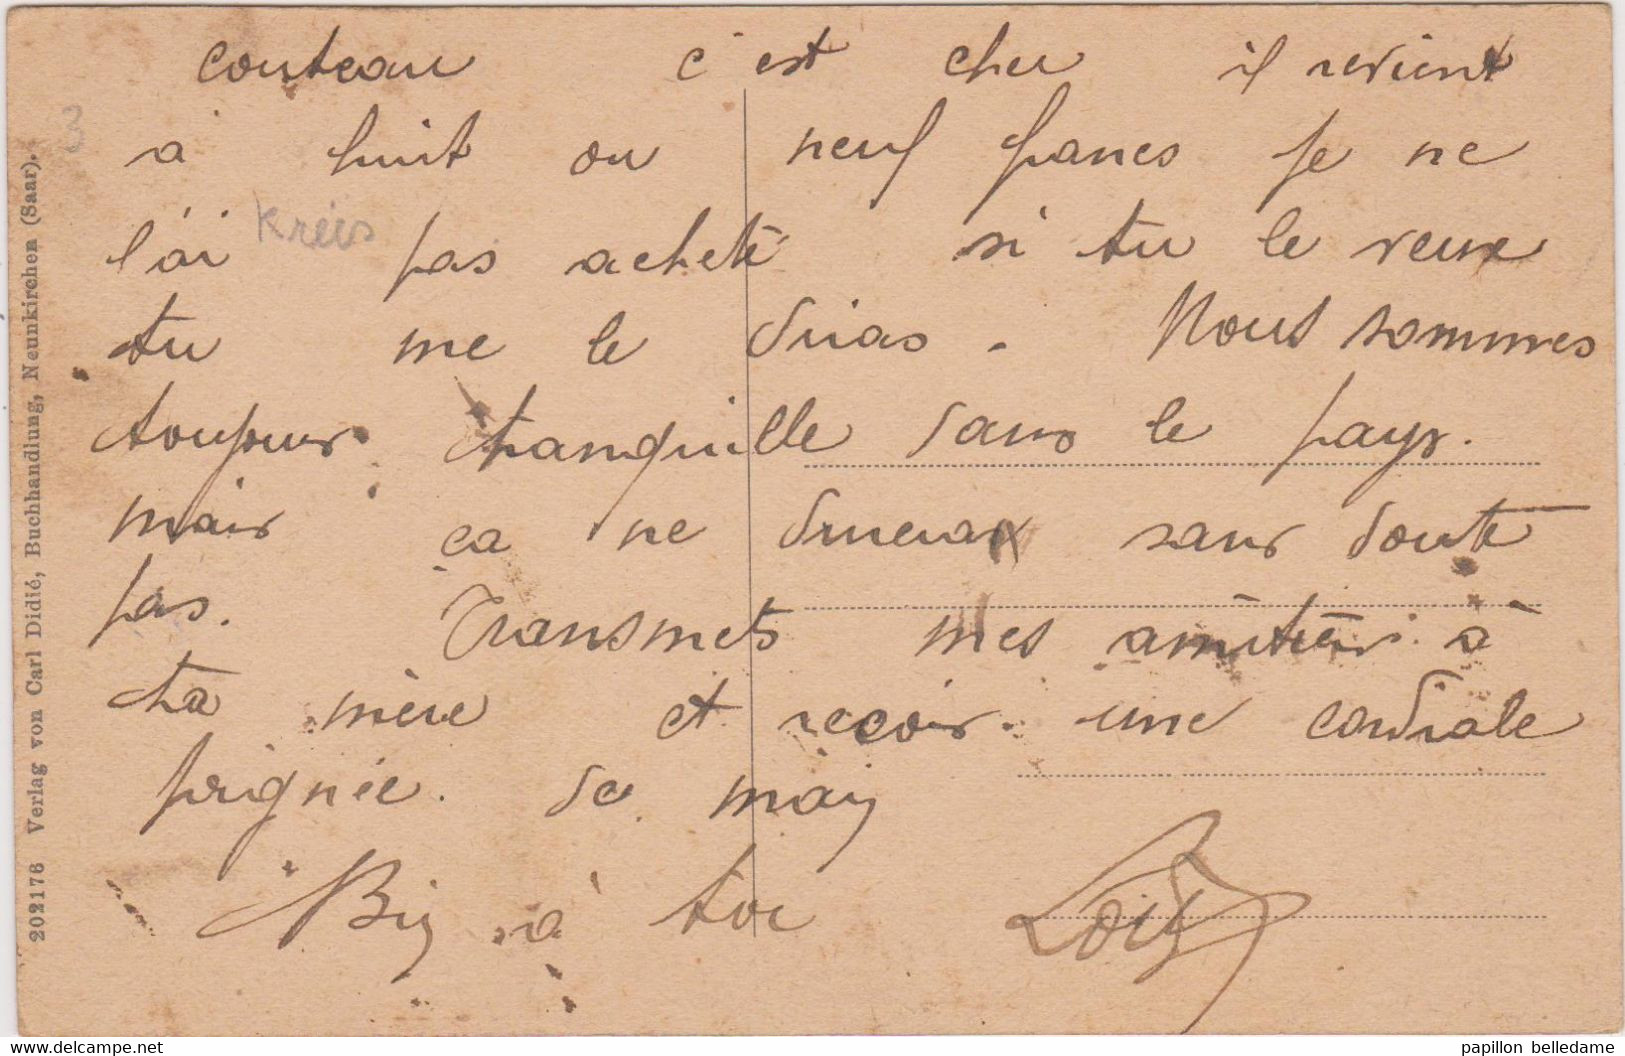 couteau c'est cher il revient
à huit ou neuf francs je ne
l'ai pas acheté si tu le veux
tu me le diras. Nous sommes
toujours tranquille dans le pays.
mais ça ne durera sans doute
pas. Transmets mes amitiés à
ta mère et reçois une cordiale
poignée de main
Bien à toi
3
Kreis
202176 Verlag von Carl Didié, Buchhandlung, Neunkirchen (Saar).
www.delcampe.net
papillon belledame